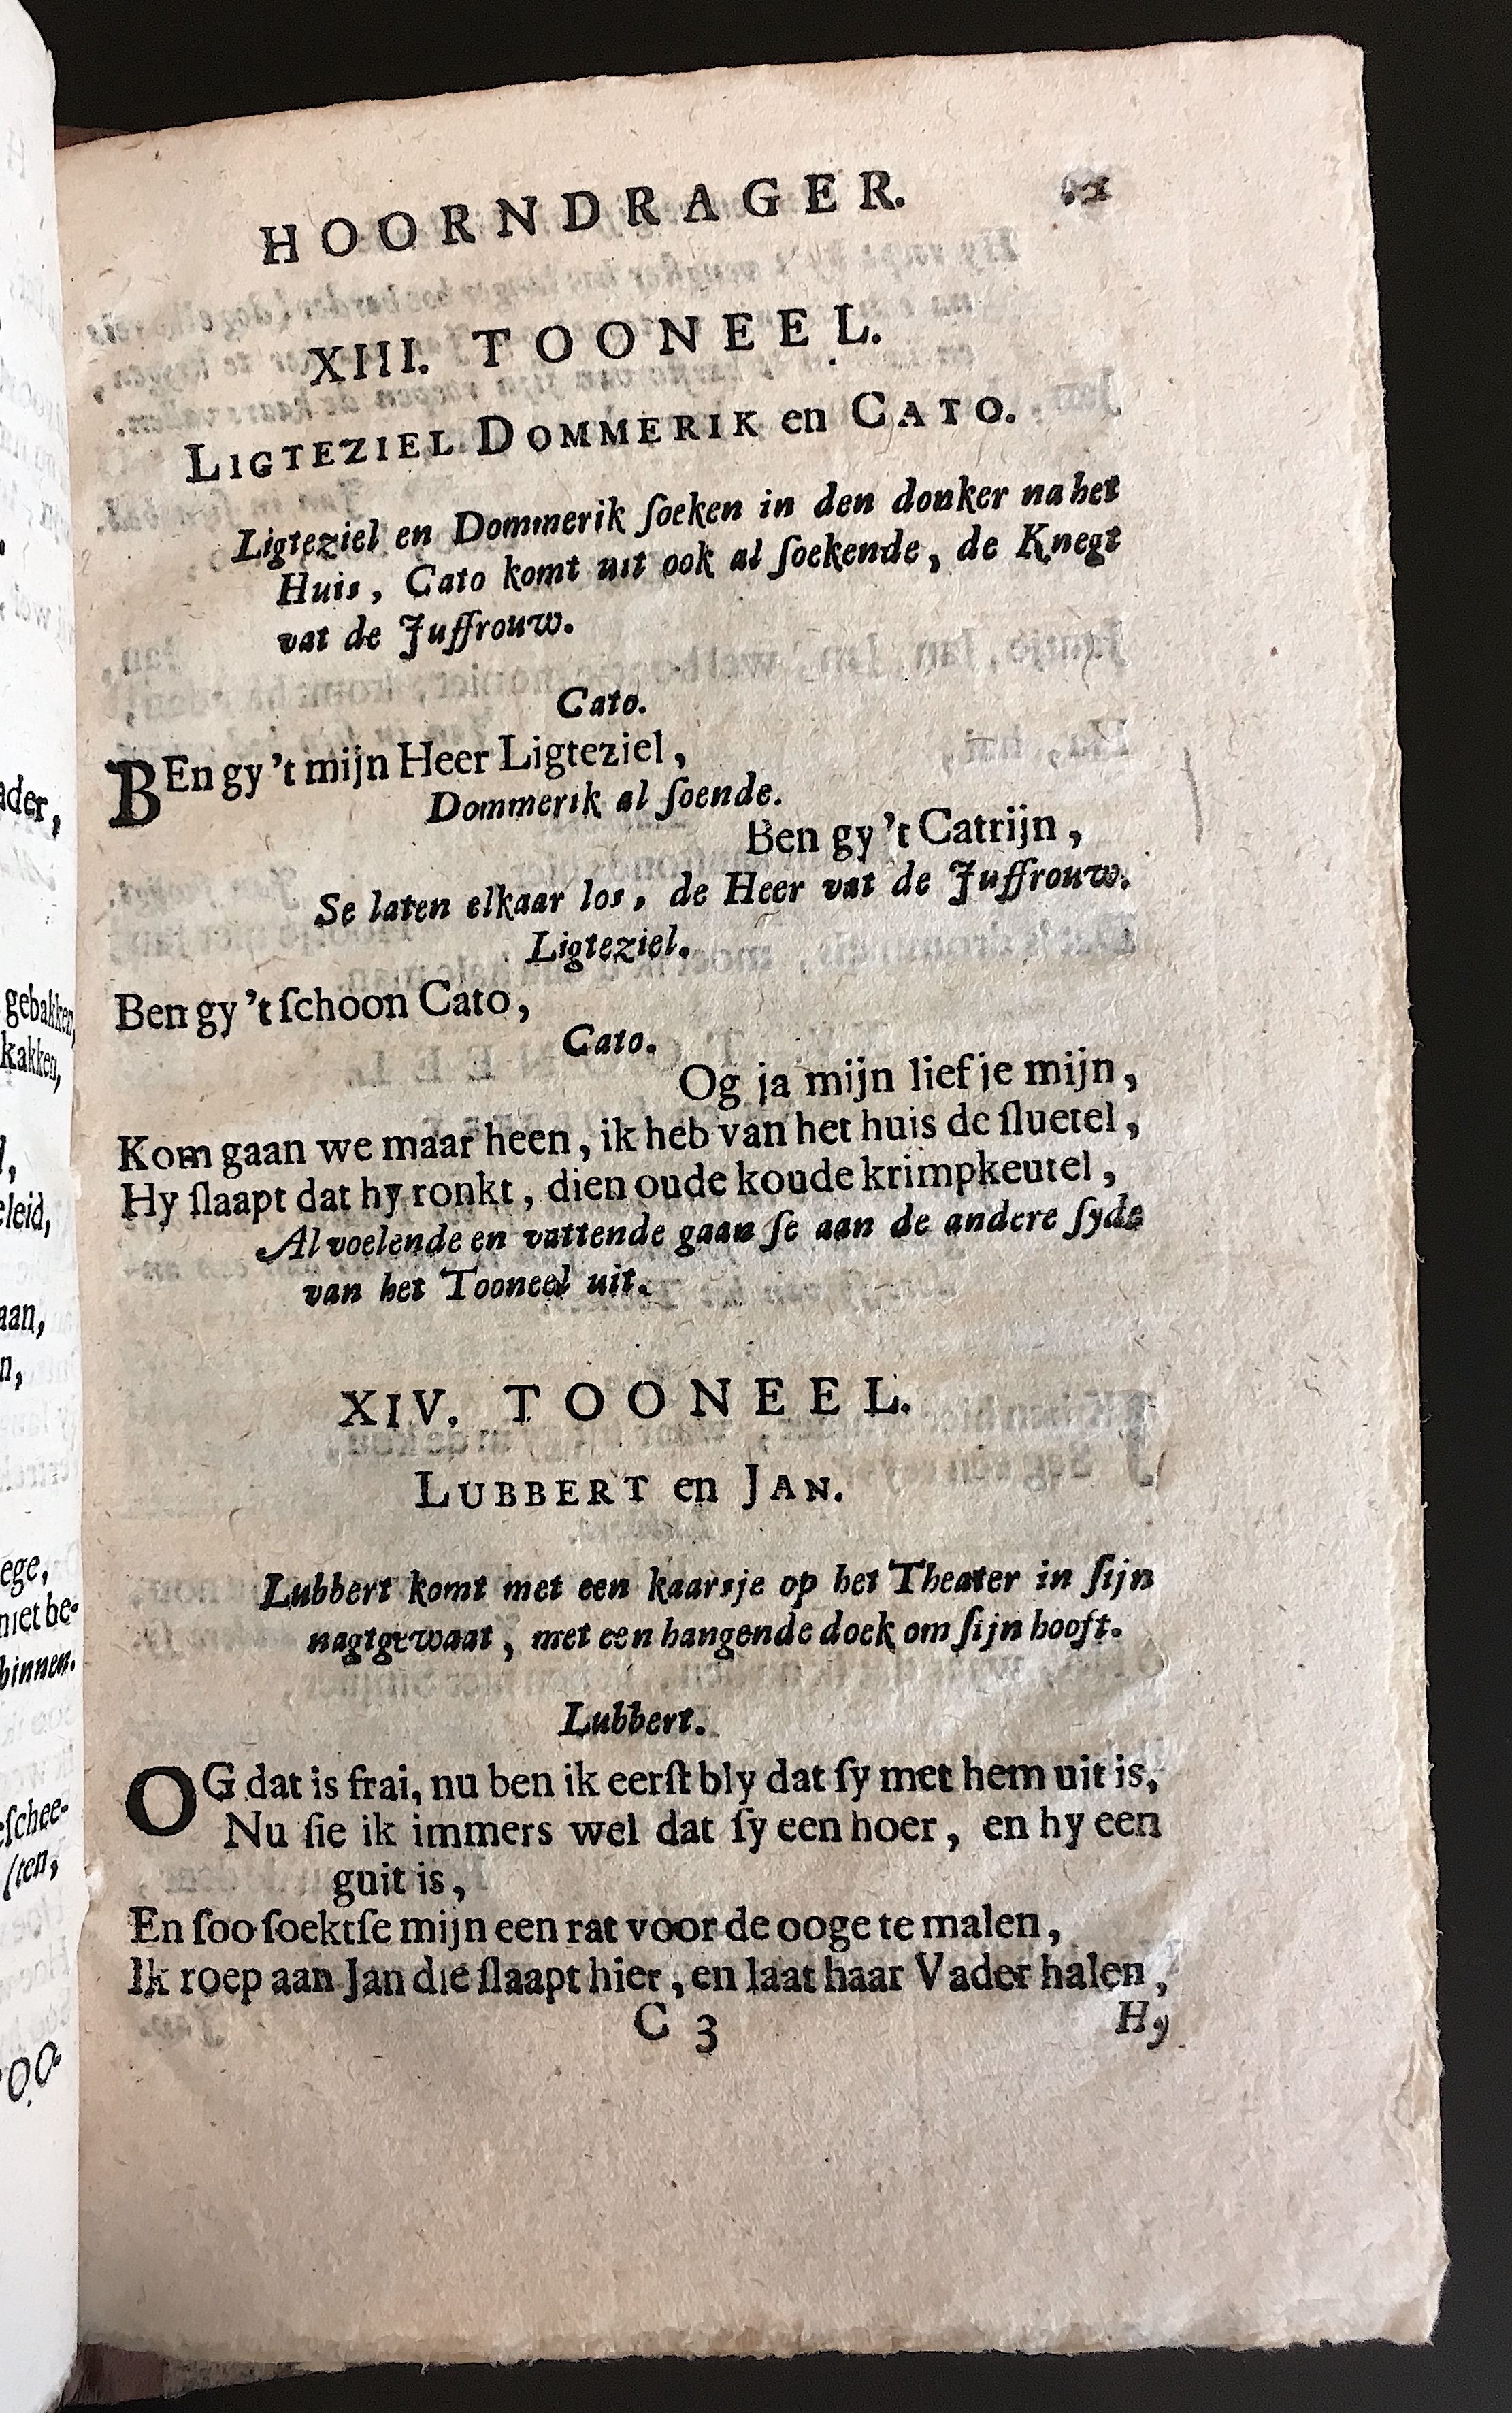 HOORNDRAGER.
XIII. TOONEEL.
LIGTEZIEL DOMMERIK en CATO.
Ligteziel en Dommerik ſoeken in den donker na het
Huis, Cato komt uit ook al ſoekende, de Knegt
vat de Juffrouw.
Cato.
BEn gy 't mijn Heer Ligteziel,
Dommerik al ſoende.
Ben gy 't Catrijn,
Se laten elkaar los, de Heer vat de Juffrouw.
Ligteziel.
Ben gy 't ſchoon Cato,
Cato.
Og ja mijn liefje mijn,
Kom gaan we maar heen, ik heb van het huis de ſluetel,
Hy ſlaapt dat hy ronkt, dien oude koude krimpkeutel,
Al voelende en vattende gaan ſe aan de andere ſyde
van het Tooneel uit.
XIV. TOONEEL.
LUBBERT en JAN.
Lubbert komt met een kaarsje op het Theater in ſijn
nagtgewaat, met een hangende doek om ſijn hooft.
Lubbert.
OG dat is frai, nu ben ik eerſt bly dat ſy met hem uit is,
Nu ſie ik immers wel dat ſy een hoer, en hy een
guit is,
En ſoo ſoektſe mijn een rat voor de ooge te malen,
Ik roep aan Jan die ſlaapt hier, en laat haar Vader halen,
C 3
Hy
ader,
gebakken,
kakken,
eleid,
aan,
n,
ege,
niet be-
binnen.
eſchee-
ſten,
OO-